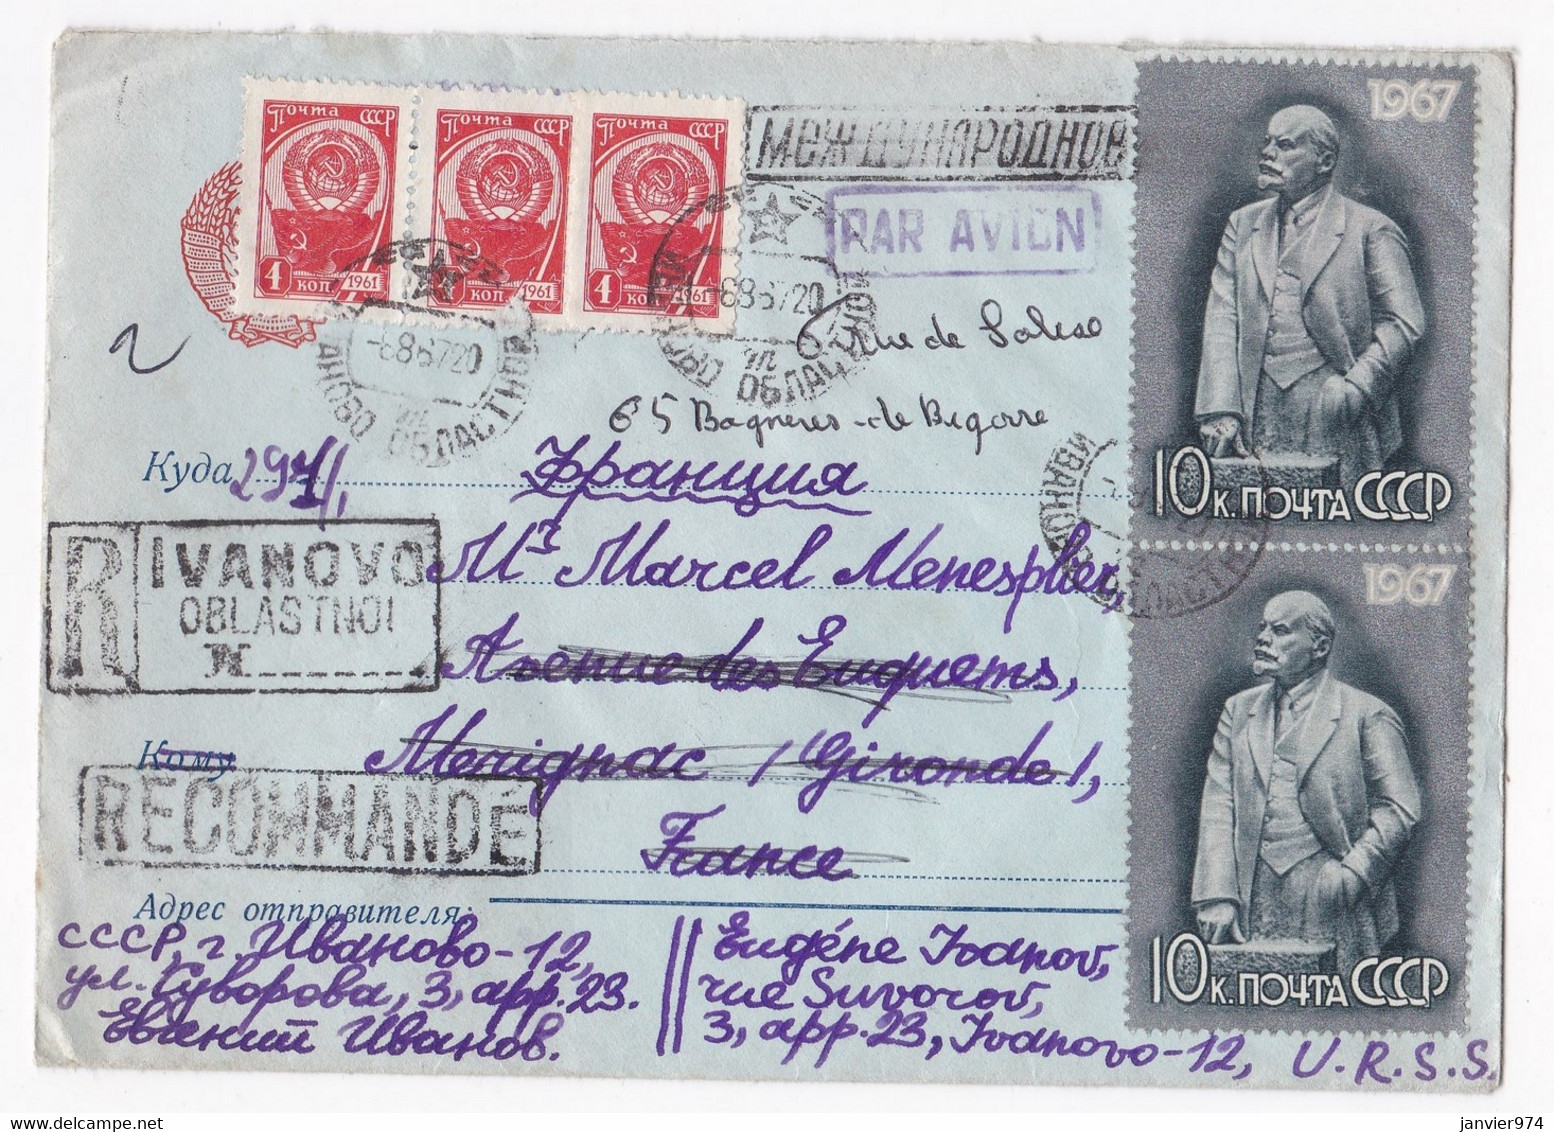 1967
Почта СССР
Почта СССР
Почта СССР
МЕЖДУНАРОДНОЕ
PAR AVION
4 КОП 1961
КОП 1961
4 КОП 1961
-6867 20
-6867 20
ИВАНОВО ОБЛАСТНОЙ
ОБЛАСТНОЙ
6 rue de
65 Bagneres-de Bigorre
10 К. ПОЧТА СССР
Куда
297/1.
Франция
R IVANOVO
OBLASTNOI
N
Mr Marcel Menesplier,
1967
Avenue des Euquems,
Кому
Merignac /Gironde/,
RECOMMANDÉ
France
Адрес отправителя:
10 К. ПОЧТА СССР
СССР, г. Иваново-12,
ул. Суворова, 3, app. 23.
Евгений Иванов.
Eugéne Ivanov,
rue Suvorov,
3, app. 23, Ivanovo-12, U.R.S.S.
janvier974